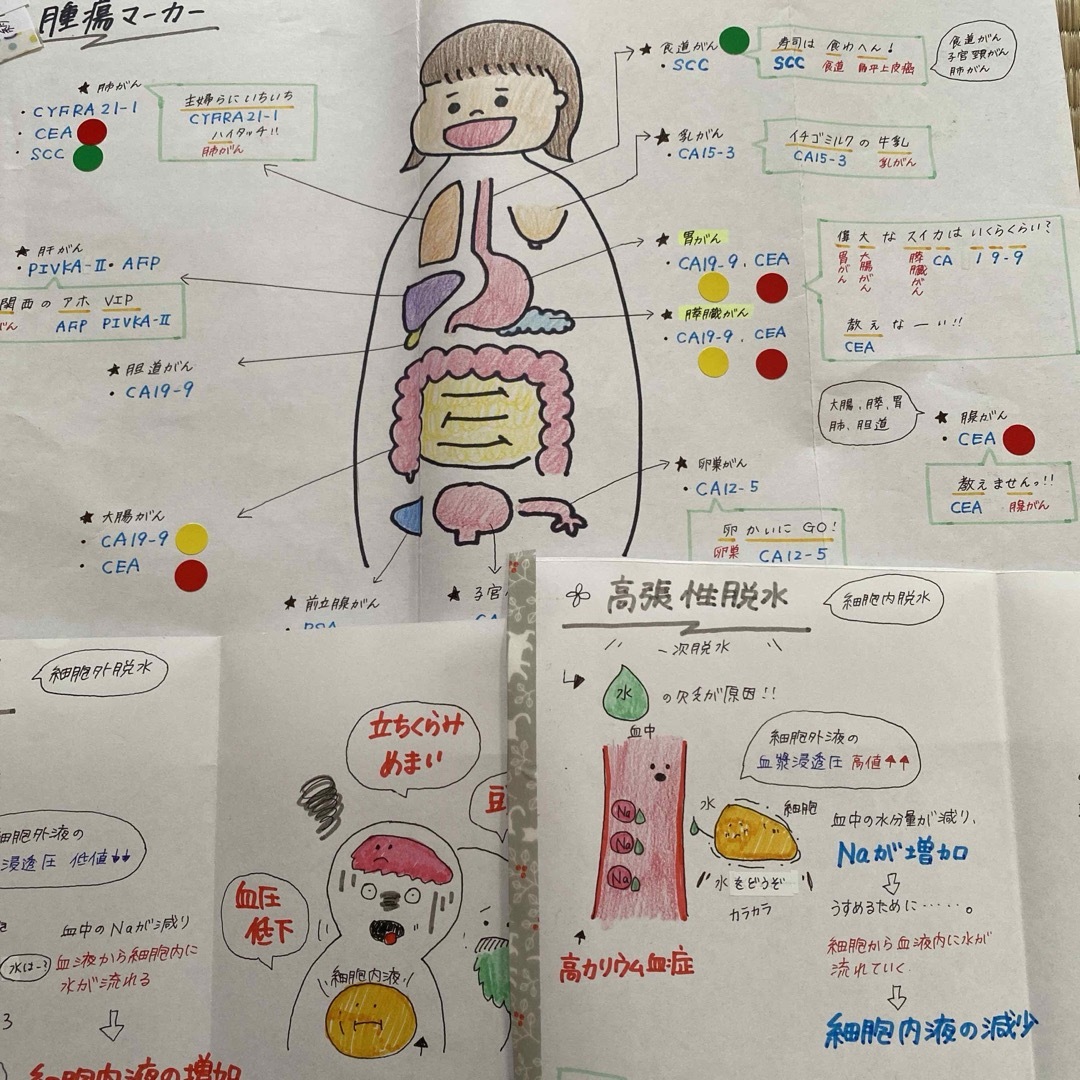 腫瘍マーカー
★ 肺がん
・CYFRA 21-1
・CEA
・SCC
主婦らにいちいち
CYFRA 21-1
ハイタッチ!!
肺がん
★ 食道がん
・SCC
寿司は食わへん!
SCC 食道 扁平上皮癌
食道がん
子宮頸がん
肺がん
★ 乳がん
・CA15-3
イチゴミルクの牛乳
CA15-3 乳がん
★ 肝がん
・PIVKA-Ⅱ・AFP
関西のアホ VIP
がん AFP PIVKA-Ⅱ
★ 胃がん
・CA19-9、CEA
★ 膵臓がん
・CA19-9、CEA
偉大なスイカはいくらくらい?
胃がん 大腸がん 膵臓がん CA 19-9
教えなーい!!
CEA
★ 胆道がん
・CA19-9
大腸、膵、胃
肺、胆道
★ 腺がん
・CEA
教えませんっ!!
CEA 腺がん
★ 卵巣がん
・CA12-5
卵かいにGO!
卵巣 CA12-5
★ 大腸がん
・CA19-9
・CEA
★ 前立腺がん
・PSA
★ 子宮
細胞外脱水
立ちくらみ
めまい
血圧
低下
細胞外液の
浸透圧 低値↓↓
血中のNaが減り
水は…?
血液から細胞内に
水が流れる
⇩
細胞内液の増加
細胞内液
高張性脱水
細胞内脱水
一次脱水
水の欠乏が原因!!
血中
細胞外液の
血漿浸透圧 高値↑↑
Na
Na
Na
水
細胞
水をどうぞ
カラカラ
高カリウム血症
血中の水分量が減り、
Naが増加
⇩
うすめるために……。
細胞から血液内に水が
流れていく
⇩
細胞内液の減少